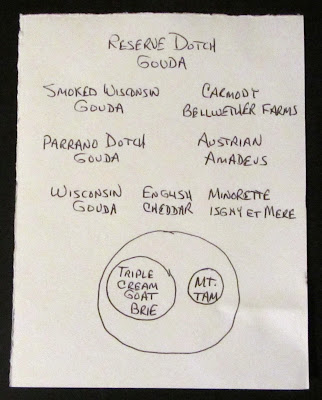 RESERVE DOTCH
GOUDA
SMOKED WISCONSIN
GOUDA
CARMODY
BELLWETHER FARMS
PARRANO DOTCH
GOUDA
AUSTRIAN
AMADEUS
WISCONSIN
GOUDA
ENGLISH
CHEDDAR
MINORETTE
ISGNY ET MERE
TRIPLE
CREAM
GOAT
BRIE
MT.
TAM